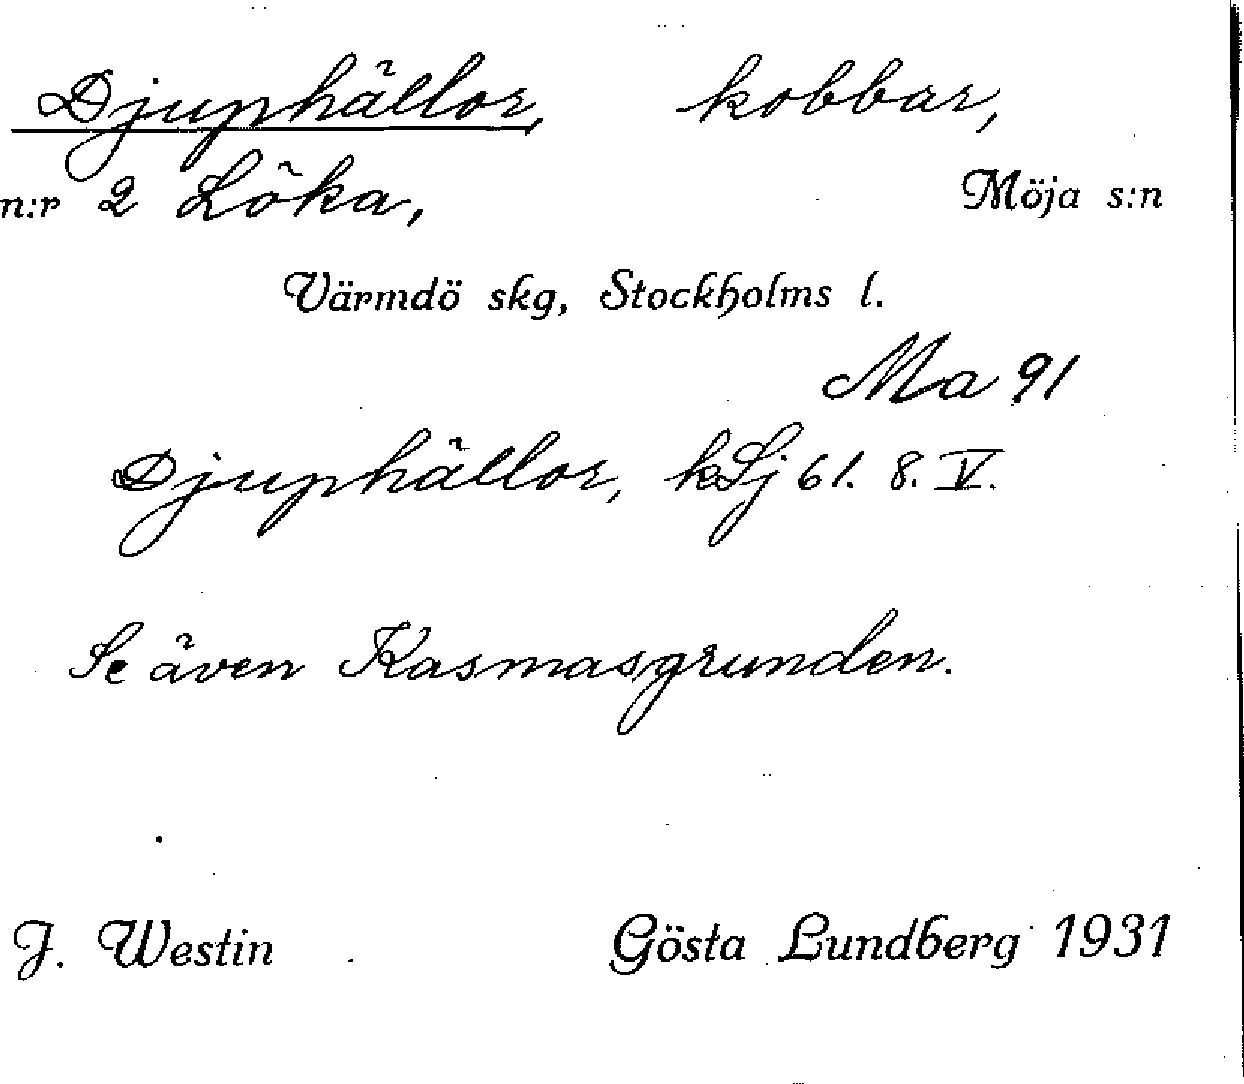 Djuphällor, kobbar,
n:r 2 Löka, Möja s:n
Värmdö skg, Stockholms l.
Ma 91
Djuphällor, kSj 61. 8. V.
Se även Kasmasgrunden.
J. Westin Gösta Lundberg 1931